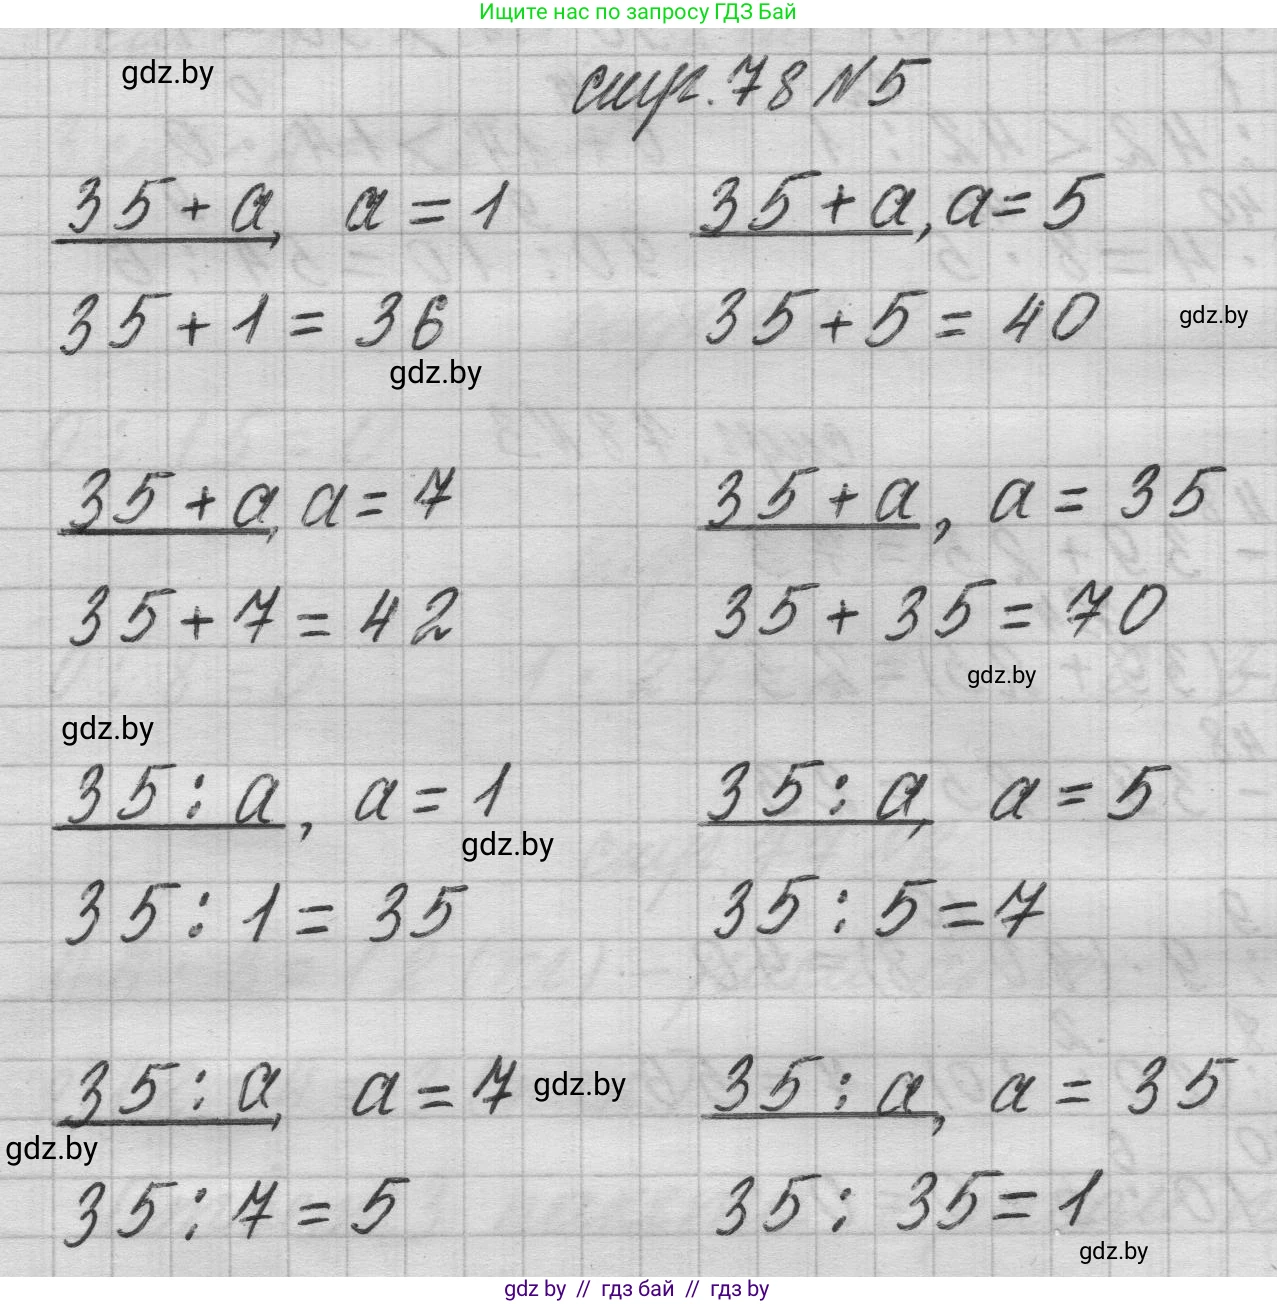 Ищите нас по запросу ГДЗ Бай
gdz.by
стр. 78 №5
35 + a, a = 1 35 + a, a = 5
35 + 1 = 36 35 + 5 = 40
gdz.by
gdz.by
35 + a, a = 7 35 + a, a = 35
35 + 7 = 42 35 + 35 = 70
gdz.by
gdz.by
35 : a, a = 1 35 : a, a = 5
gdz.by
35 : 1 = 35 35 : 5 = 7
35 : a, a = 7 35 : a, a = 35
gdz.by
gdz.by
35 : 7 = 5 35 : 35 = 1
gdz.by
gdz by // гдз бай // гдз by